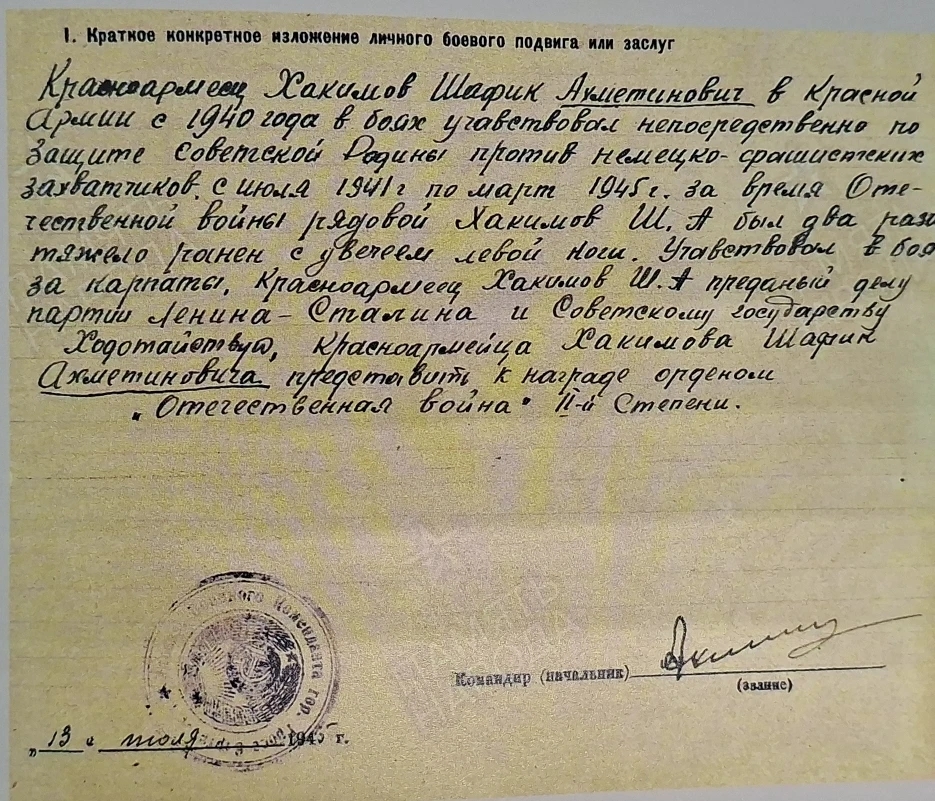 I. Краткое конкретное изложение личного боевого подвига или заслуг
Красноармеец Хакимов Шафик Ахметинович в Красной
Армии с 1940 года в боях учавствовал непосредственно по
защите Советской Родины против немецко-фашистских
захватчиков. с июля 1941 г по март 1945 г. за время Оте-
чественной войны рядовой Хакимов Ш. А был два раза
тяжело ранен с увечеем левой ноги. Учавствовал в боях
за карпаты, Красноармеец Хакимов Ш. А преданый делу
партии Ленина-Сталина и Советскому государству
Ходотайствую, красноармейца Хакимова Шафик
Ахметиновича представить к награде орденом
„Отечественная война" II-й Степени.
Военного Коменданта гор.
Командир (начальник)
(звание)
„13 " июля 1945 г.